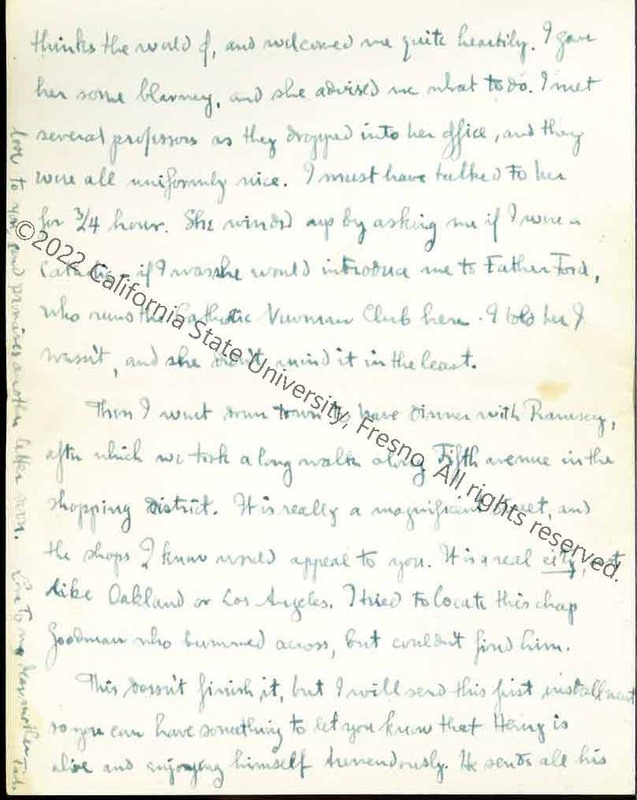 thinks the world of, and welcomed me quite heartily. I gave
her some blarney, and she advised me what to do. I met
several professors as they dropped into her office, and they
were all uniformly nice. I must have talked to her
for 3/4 hour. She winded up by asking me if I were a
Catholic, if I was she would introduce me to Father Ford,
who runs the Catholic Newman Club here. I told her I
wasn't, and she didn't mind it in the least.
Then I went down town to have dinner with
after which we took a long walk along Fifth avenue in the
shopping district. It is really a magnificent street, and
the shops I know would appeal to you. It is a real city, not
like Oakland or Los Angeles. I tried to locate this chap
Goodman who bummed across, but couldn't find him.
This doesn't finish it, but I will send this first installment
so you can have something to let you know that is
alive and enjoying himself tremendously. He sends all his
love to you, and promises another letter soon. Love to my dear mother
©2022 California State University, Fresno. All rights reserved.